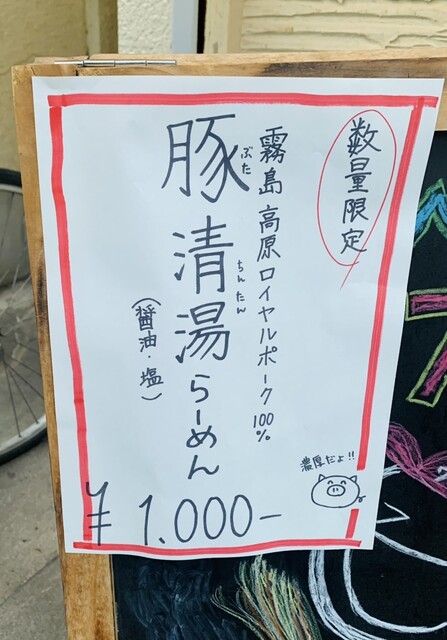 数量限定
霧島高原ロイヤルポーク100%
豚清湯らーめん
ぶた
ちんたん
(醤油・塩)
濃厚だよ!!
¥1.000-